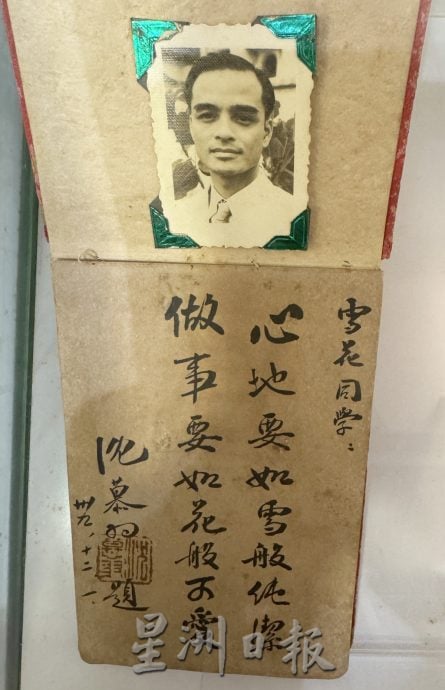 雪花同學：
心地要如雪般純潔
做事要如花般可愛
沈慕羽題
卅九、十二、一、
星洲日報